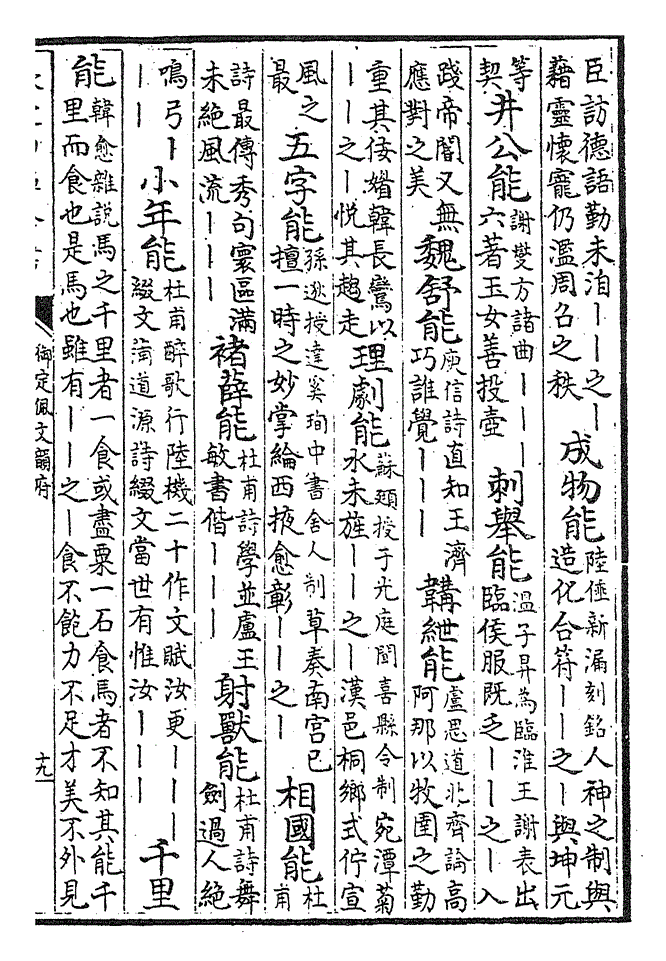 臣訪德語勤未洎丨丨之丨藉靈懷寵仍濫周召之秩成物能陸倕新漏刻銘人神之制與造化合符丨丨之丨與坤元
等契井公能謝燮方諸曲丨丨丨六著玉女善投壺刺舉能溫子昇為臨淮王謝表出臨侯服既乏丨丨之丨入
踐帝閽又無應對之美魏舒能庾信詩直知王濟巧誰覺丨丨丨韝紲能盧思道北齊論高阿那以牧圉之勤
重其倭媠韓長鸞以丨丨之丨悅其趨走理劇能蘇頲授于光庭聞喜縣令制宛潭菊水未旌丨丨之丨漢邑桐鄉式佇宣
風之最五字能孫逖授達奚珣中書舍人制草奏南宫已擅一時之妙掌綸西掖愈彰丨丨之丨相國能杜甫
詩最傳秀句寰區滿未絶風流丨丨丨褚薛能杜甫詩學並盧王敏書偕丨丨丨射獸能杜甫詩舞劍過人絶
鳴弓丨丨丨小年能杜甫醉歌行陸機二十作文賦汝更丨丨丨綴文蒲道源詩綴文當世有惟汝丨丨丨千里
能韓愈雜說馬之千里者一食或盡粟一石食馬者不知其能千里而食也是馬也雖有丨丨之丨食不飽力不足才美不外見
御定佩文韻府
十九